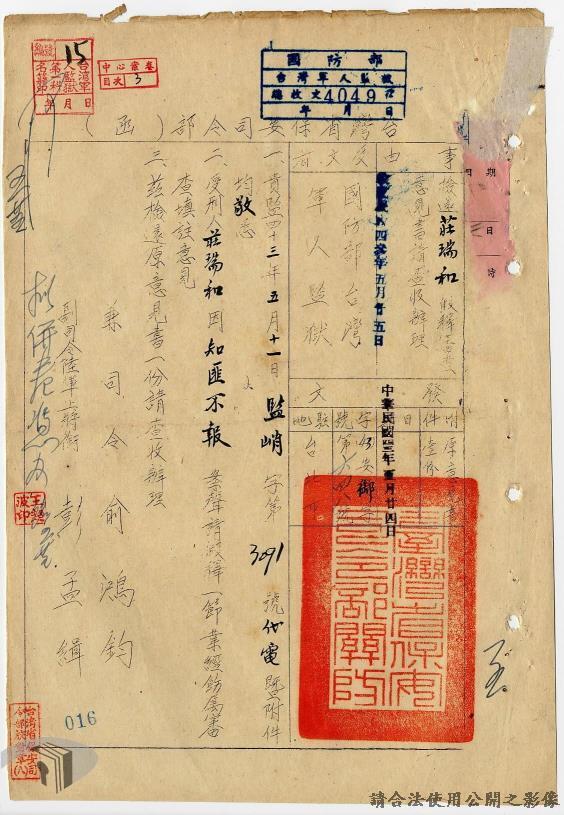 台灣省保安司令部（函）
事由
檢還莊瑞和假釋
意見書請查收辦理
受文者
國防部台灣
軍人監獄
附件
原意見書
壹份
發文
日期
中華民國卅年五月廿四日
字號
安御字
第
駐地
台北
一、貴監四十三年五月十一日監峭字第3091號代電暨附件
均敬悉
二、受刑人莊瑞和因知匪不報案聲請假釋一節業經飭屬審
查填註意見
三、茲檢還原意見書一份請查收辦理
兼司令俞鴻鈞
副司令陸軍上將銜彭孟緝
國防部
台灣軍人監獄
總收文4049號
年月日
四參年五月廿五日
15
台灣軍人監獄
第一科
名籍
年月日
中心案卷
目次3
期
日
時
臺灣省保安司令部關防
王
波印
台灣省保安司
令部
016
請合法使用公開之影像